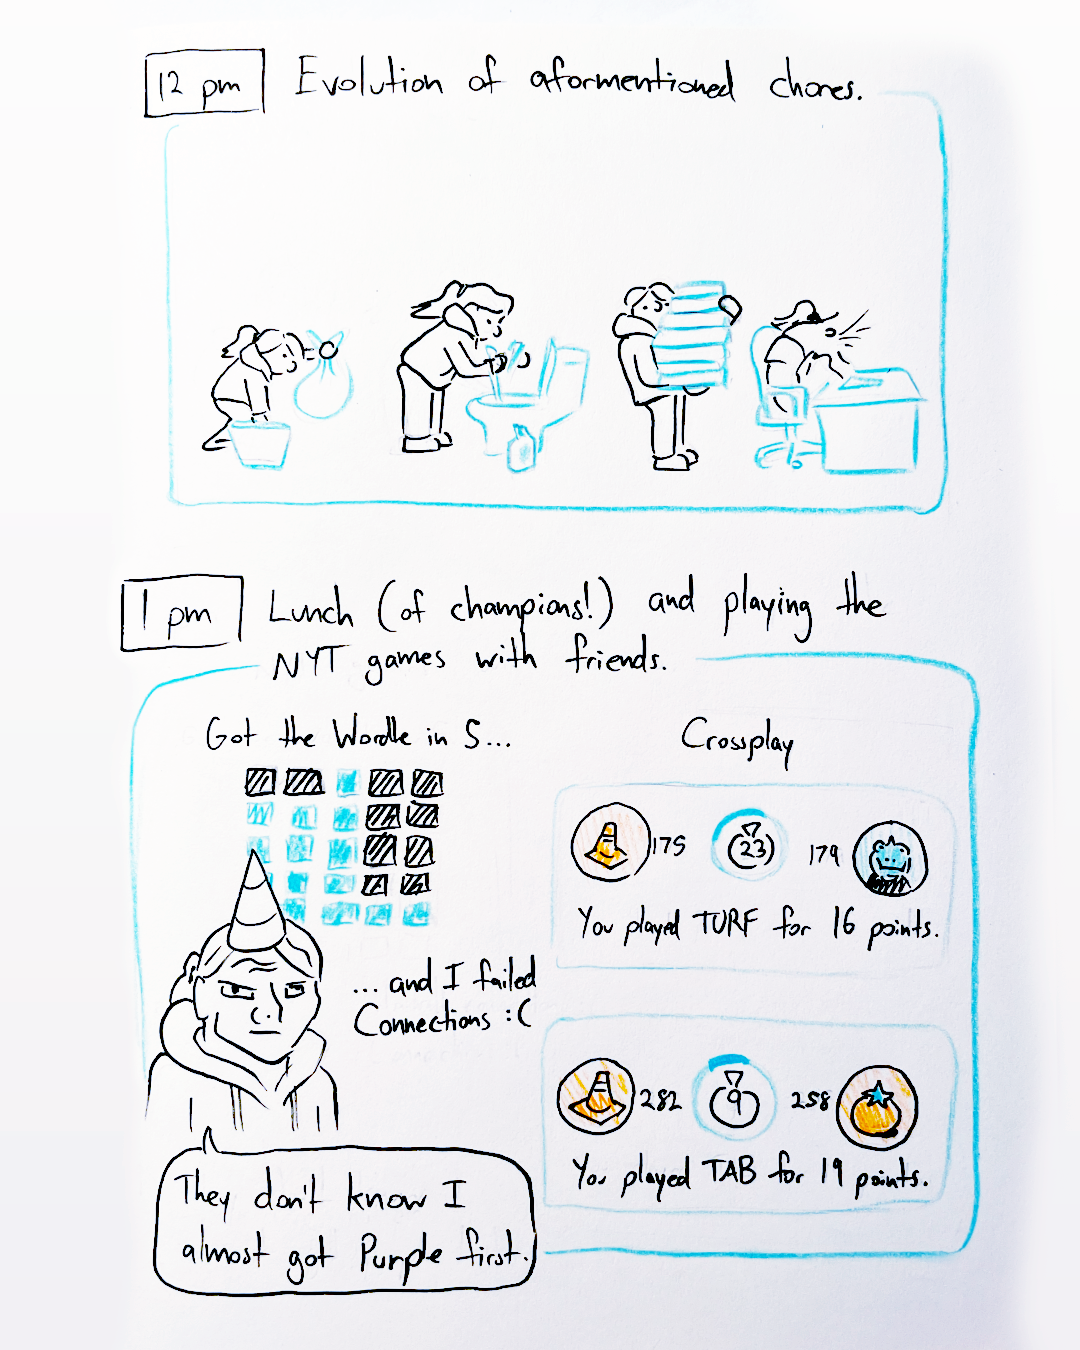 12 pm Evolution of aformentioned chores.
1 pm Lunch (of champions!) and playing the
NYT games with friends.
Got the Wordle in 5...
... and I failed
Connections :(
They don't know I
almost got Purple first.
Crossplay
175 23 179
You played TURF for 16 points.
282 9 258
You played TAB for 19 points.